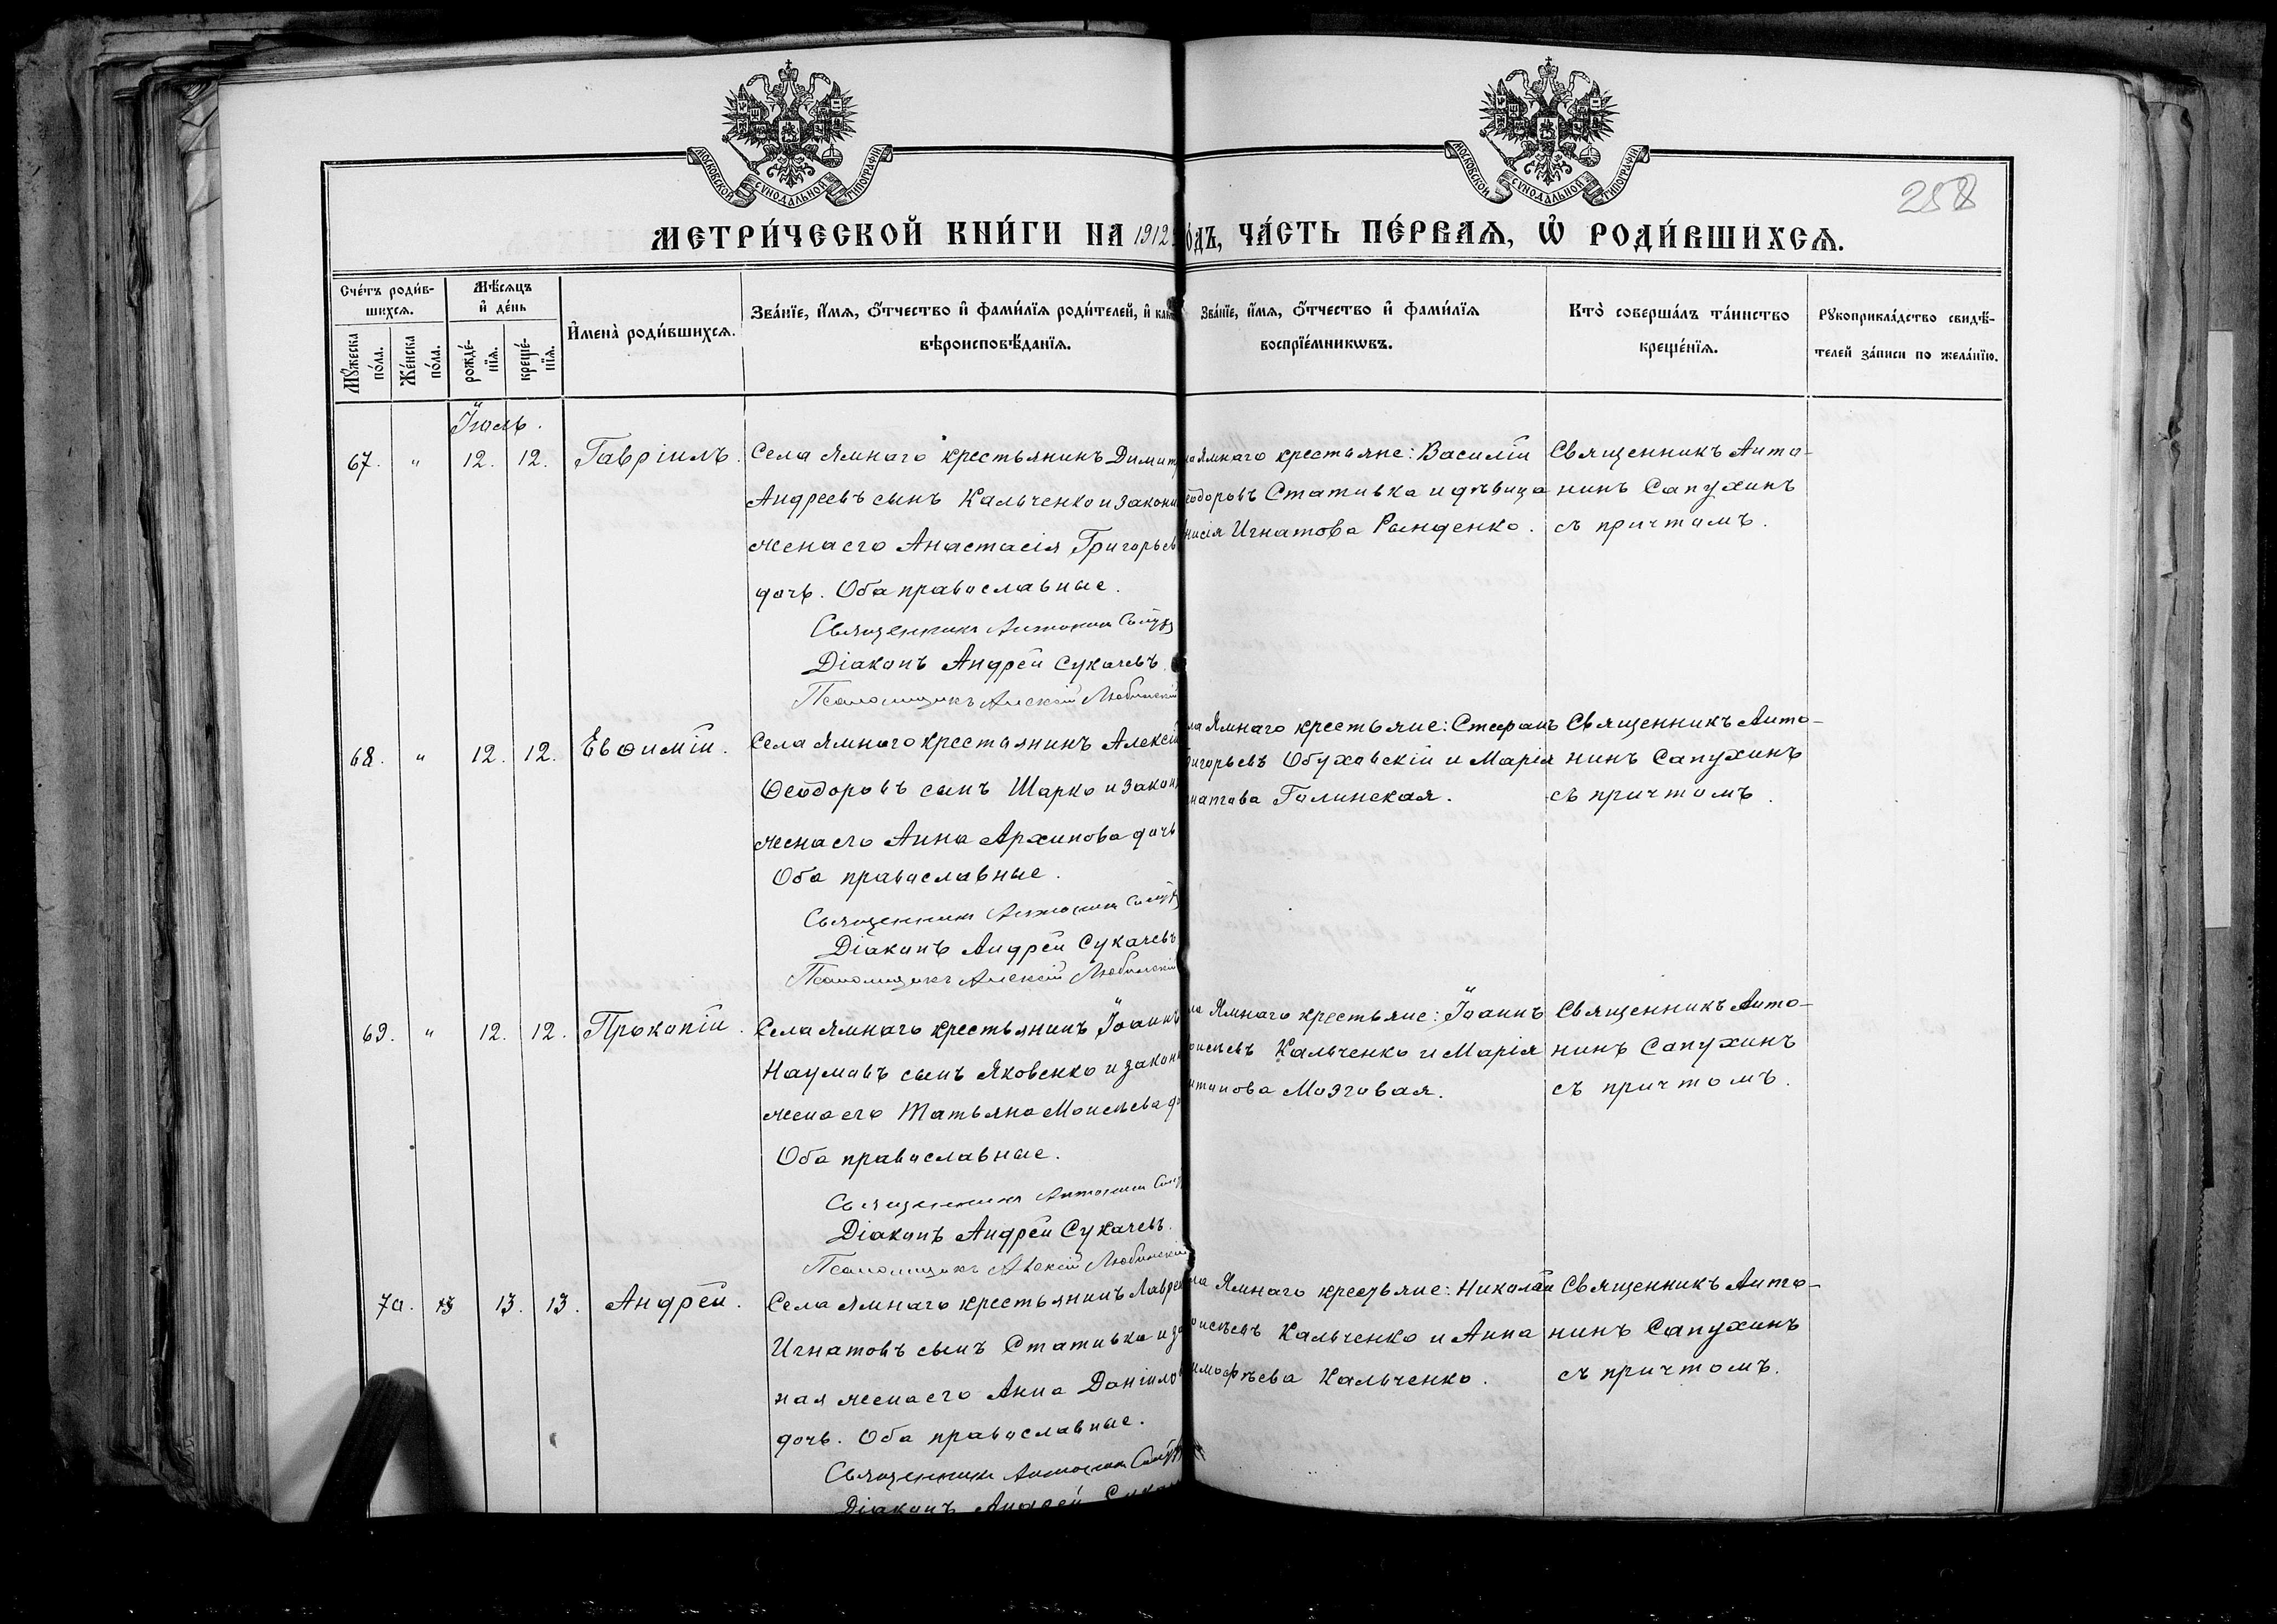 МОСКОВСКОЙ СУНОДАЛЬНОЙ ТИПОГРАФІИ
МОСКОВСКОЙ СУНОДАЛЬНОЙ ТИПОГРАФІИ
258
МЕТРИ́ЧЕСКОЙ КНИ́ГИ НА 1912 го́дъ, ЧА́СТЬ ПЕ́РВАѦ, Ѡ҆ РОДИ́ВШИХСѦ.
Сче́тъ роди́в-
шихсѧ.
Мꙋ́жеска по́ла.
Же́нска по́ла.
Мѣ́сѧцъ
и҆ де́нь
рожде́-
нїѧ.
креще́-
нїѧ.
И҆мена̀ роди́вшихсѧ.
Зва́нїе, и҆́мѧ, ѻ҆́тчество и҆ фами́лїѧ роди́телей, и҆ как
вѣроисповѣ́данїѧ.
Зва́нїе, и҆́мѧ, ѻ҆́тчество и҆ фами́лїѧ
воспрїе́мникѡвъ.
Кто̀ соверша́лъ та́инство
креще́нїѧ.
Рꙋкоприкла́дство свидѣ́-
телей за́писи по жела́нїю.
Іюль.
67. " 12. 12. Гавріилъ.
Села Ямнаго крестьянинъ Димит
Андреевъ сынъ Кальченко и закон
жена его Анастасія Григорьев
дочь. Оба православные.
Священникъ Антонин
Діаконъ Андрей Сукачевъ.
Псаломщикъ Алексій Любинскій
Ямнаго крестьяне: Василій
еодоровъ Стативка и дѣвица
нисія Игнатова Рынденко.
Священникъ Анто-
нинъ Сапухинъ
съ причтомъ.
68. " 12. 12. Евѳимій.
Села Ямнаго крестьянинъ Алексій
Ѳеодоровъ сынъ Шарко и закон
жена его Анна Архипова дочь
Оба православные.
Священникъ Антонин
Діаконъ Андрей Сукачевъ
Псаломщикъ Алексій Любинскій
ла Ямнаго крестьяне: Стефанъ
ригорьевъ Обуховскій и Марія
натова Голинская.
Священникъ Анто-
нинъ Сапухинъ
съ причтомъ.
69. " 12. 12. Прокопій.
Села Ямнаго крестьянинъ Іоаннъ
Наумовъ сынъ Яковенко и закон
жена его Татьяна Моисѣева до
Оба православные.
Священникъ Антонин
Діаконъ Андрей Сукачевъ.
Псаломщикъ Алексій Любинскій
ла Ямнаго крестьяне: Іоаннъ
оисѣевъ Кальченко и Марія
Мозговая.
Священникъ Анто-
нинъ Сапухинъ
съ причтомъ.
70. 13. 13. Андрей.
Села Ямнаго крестьянинъ Лаврен
Игнатовъ сынъ Стативка и за
ная жена его Анна Даніилов
дочь. Оба православные.
Священникъ Антонин
Діаконъ Андрей Сукач
ла Ямнаго крестьяне: Николай
оисѣевъ Кальченко и Анна
имофѣева Кальченко.
Священникъ Анто-
нинъ Сапухинъ
съ причтомъ.